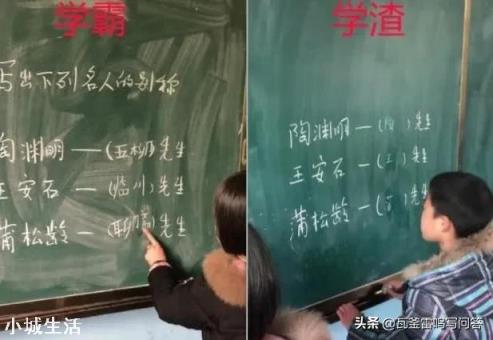 学霸
写出下列名人的别称
陶渊明—(五柳)先生
王安石—(临川)先生
蒲松龄—(聊斋)先生
小城生活
学渣
陶渊明—(陶)先生
王安石—(王)先生
蒲松龄—( )先生
头条 @瓦釜雷鸣写问答